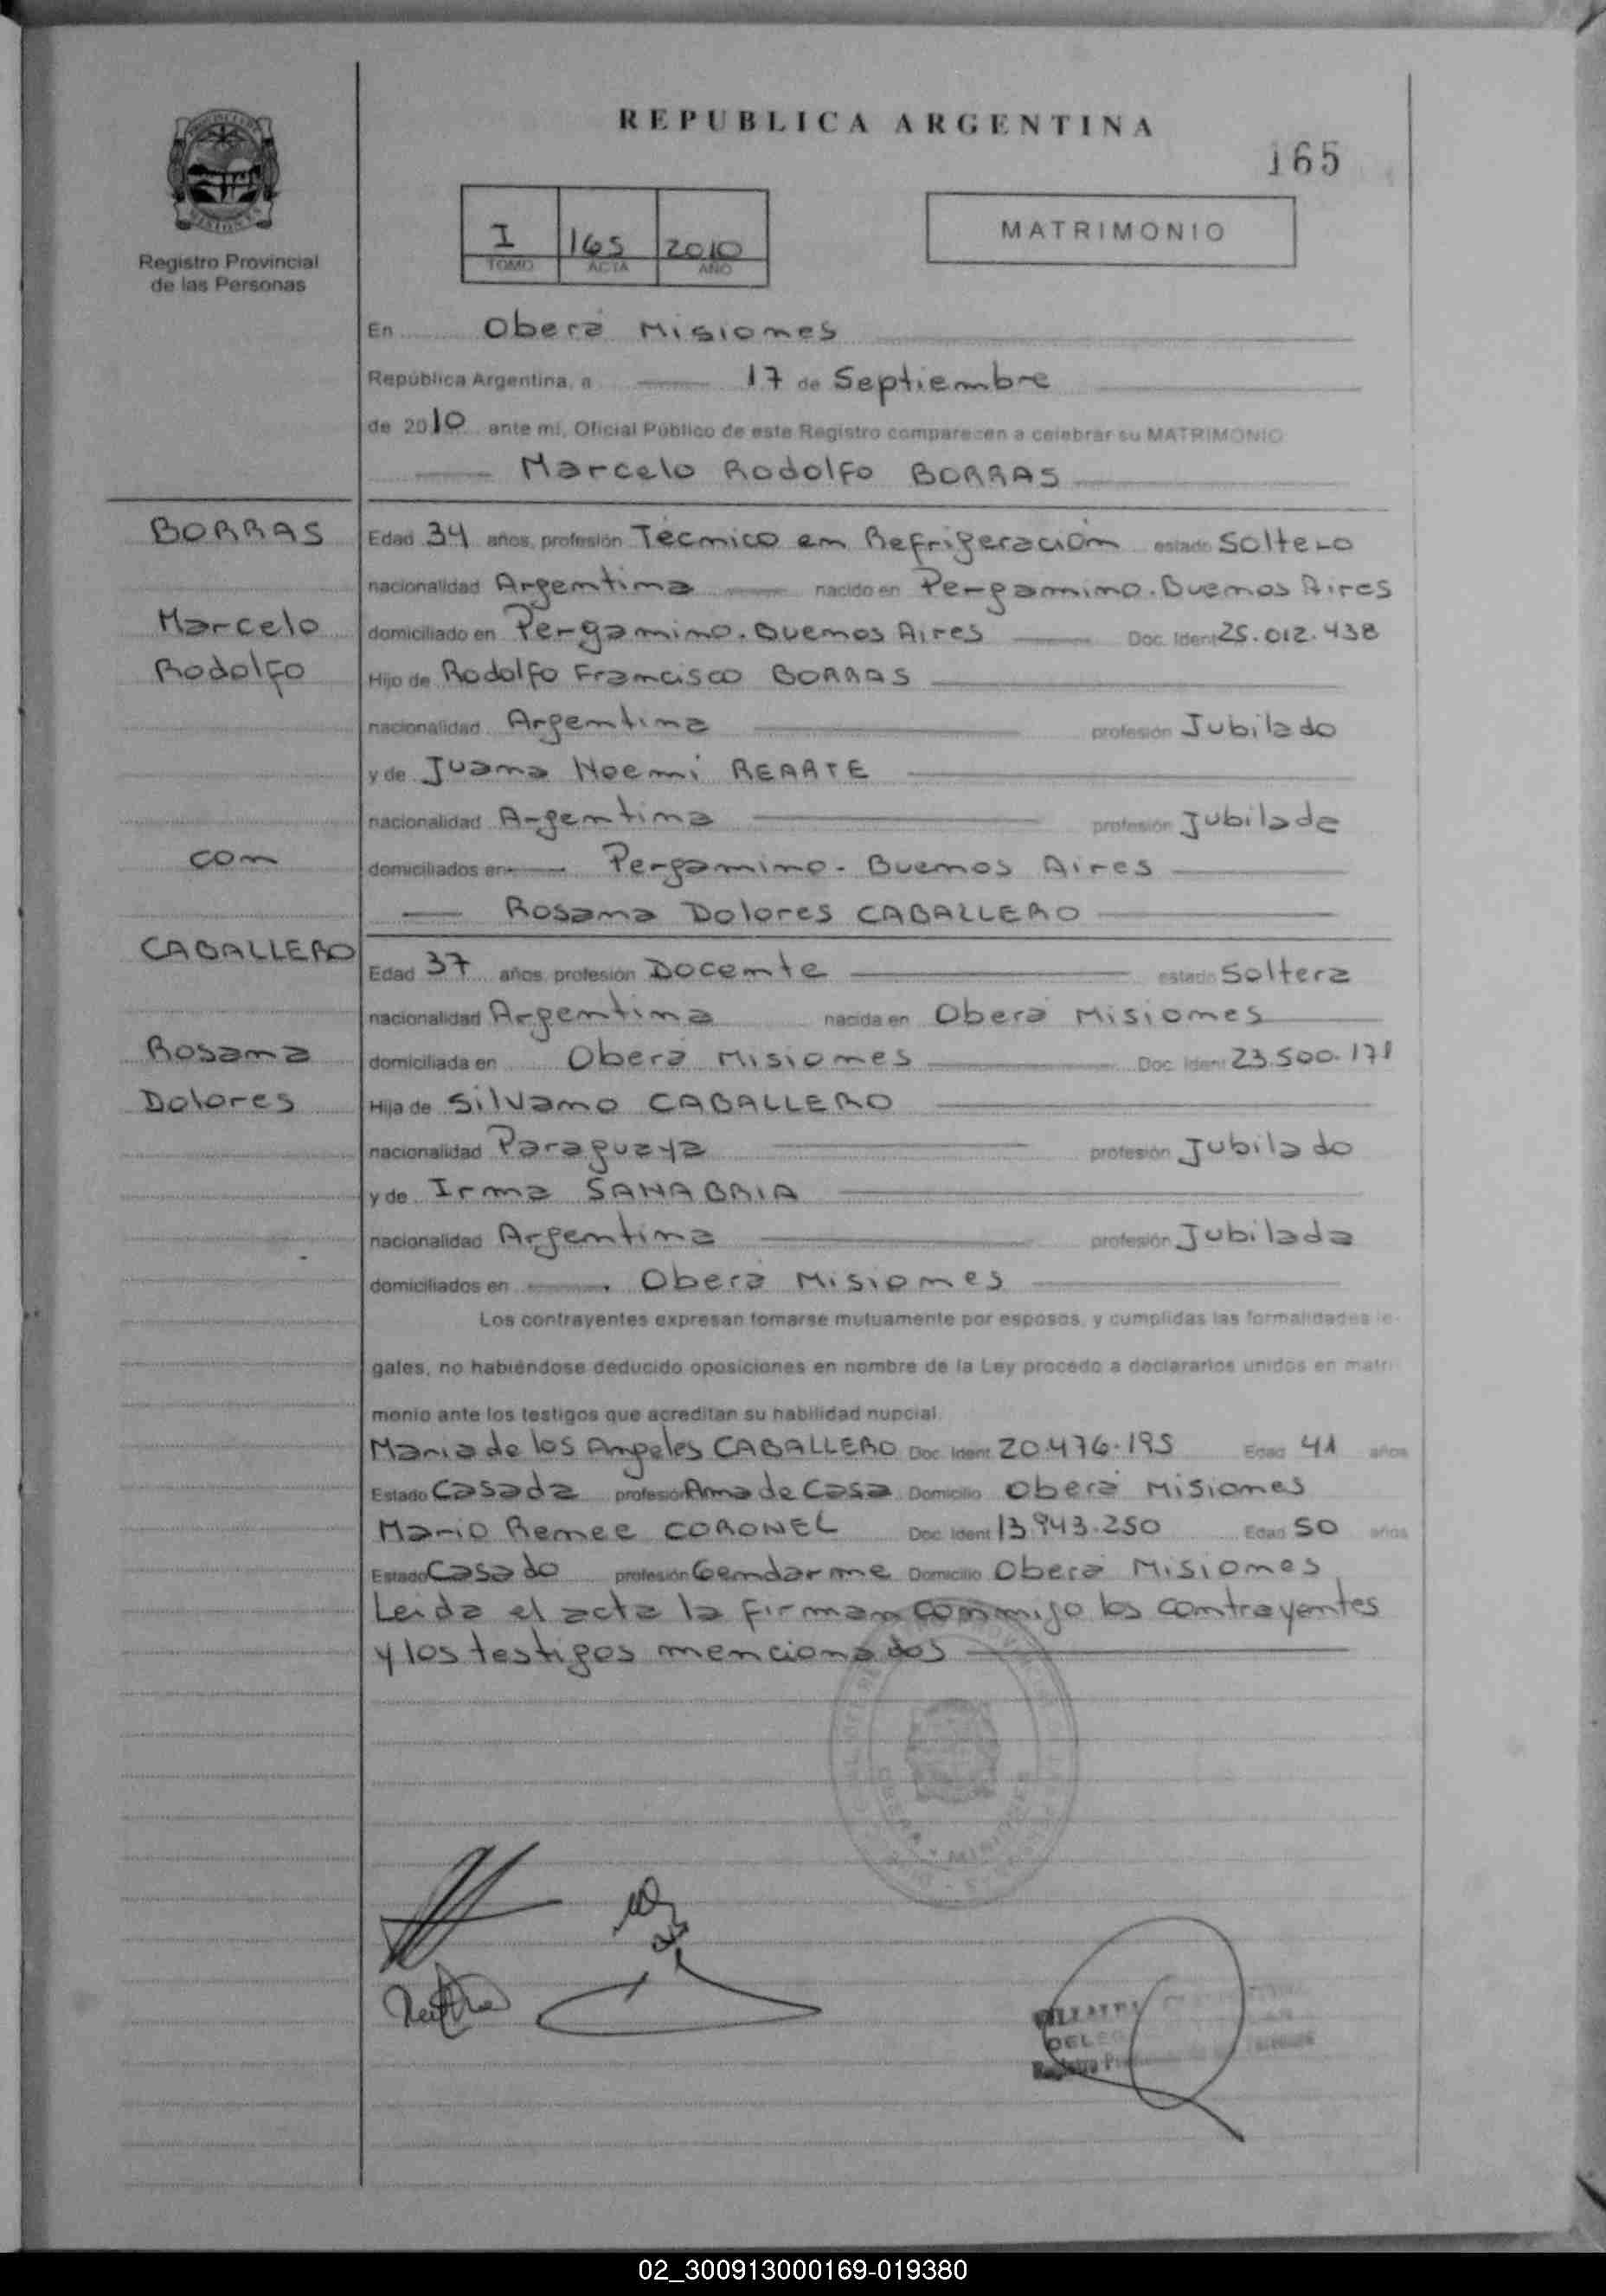 REPUBLICA ARGENTINA
165
Registro Provincial
de las Personas
I 165 2010
TOMO ACTA AÑO
MATRIMONIO
En Oberá Misiones
República Argentina, a 17 de Septiembre
de 2010 ante mí, Oficial Público de este Registro comparecen a celebrar su MATRIMONIO
Marcelo Rodolfo BORRAS
BORRAS
Edad 34 años, profesión Técnico en Refrigeración estado Soltero
nacionalidad Argentina nacido en Pergamino. Buenos Aires
Marcelo
domiciliado en Pergamino. Buenos Aires Doc. Ident 25.012.438
Rodolfo
Hijo de Rodolfo Francisco BORRAS
nacionalidad Argentina profesión Jubilado
y de Juana Noemí REARTE
nacionalidad Argentina profesión Jubilada
con
domiciliados en Pergamino. Buenos Aires
Rosana Dolores CABALLERO
CABALLERO
Edad 37 años, profesión Docente estado Soltera
nacionalidad Argentina nacida en Oberá Misiones
Rosana
domiciliada en Oberá Misiones Doc. Ident 23.500.171
Dolores
Hija de Silvano CABALLERO
nacionalidad Paraguaya profesión Jubilado
y de Irma SANABRIA
nacionalidad Argentina profesión Jubilada
domiciliados en Oberá Misiones
Los contrayentes expresan tomarse mutuamente por esposos, y cumplidas las formalidades le-
gales, no habiéndose deducido oposiciones en nombre de la Ley procedo a declararlos unidos en matri-
monio ante los testigos que acreditan su habilidad nupcial.
Maria de los Angeles CABALLERO Doc. Ident 20.476.195 Edad 41 años
Estado Casada profesión Ama de Casa Domicilio Oberá Misiones
Mario Renee CORONEL Doc. Ident 13.943.250 Edad 50 años
Estado Casado profesión Gendarme Domicilio Oberá Misiones
Leida el acta la firman conmigo los contrayentes
y los testigos mencionados
02_300913000169-019380